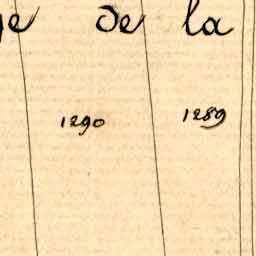 de la
1290 1289